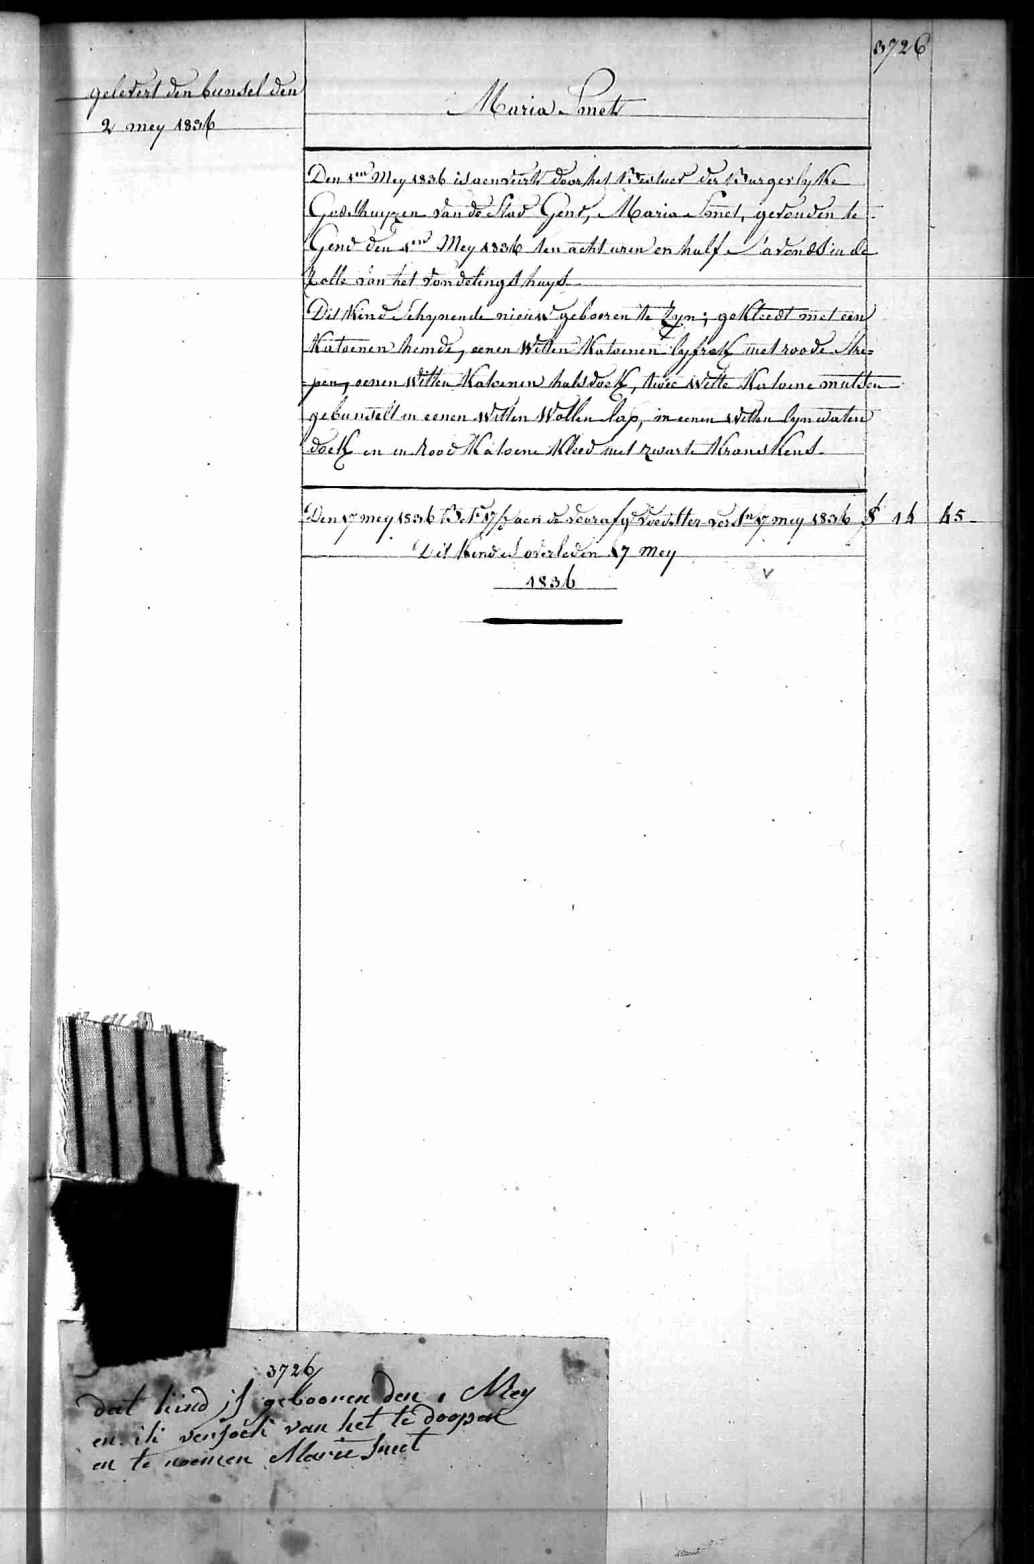 3726
gelevert den bunsel den
2 mey 1836
Maria Smet
Den 1en Mey 1836 is aenveird door het Bestuer der Burgerlyke
Godshuyzen van de Stad Gend, Maria Smet, gevonden te
Gend den 1en Mey 1836 ten acht uren en half S'avonds in de
rolle van het vondelingshuys.
Dit Kind Schynende nieuw geboren te Zyn; gekleedt met een
Katoenen hemde, eenen Witten Katoenen lyfrok met roode Stre-
pen, eenen Witten Katoenen halsdoek, twee Witte Katoene mutsen
gebunselt in eenen Witten Wollen lap, in eenen Witten lynwaten
doek en en Rood Katoene Kleed met zwarte Kranskens.
Den 17 mey 1836 aen de voedster 17 mey 1836 14 45
Dit Kind is overleden 17 Mey
1836
3726
dat kind is gebooren den 1 Mey
en ik versoek van het te doopen
en te noemen Marie Smet